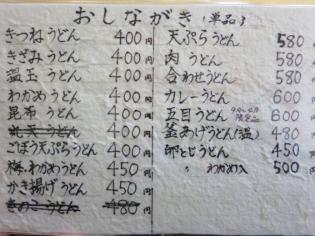 おしながき (単品)
きつねうどん 400円
きざみうどん 400円
温玉うどん 400円
わかめうどん 400円
昆布うどん 400円
ごぼう天ぷらうどん 400円
梅・わかめうどん 450円
かき揚げうどん 450円
きのこうどん 480円
天ぷらうどん 580
肉うどん 580
合わせうどん 580
カレーうどん 600
五目うどん 600
釜あげうどん(温) 480
卵とじうどん 450
〃 わかめ入 500円